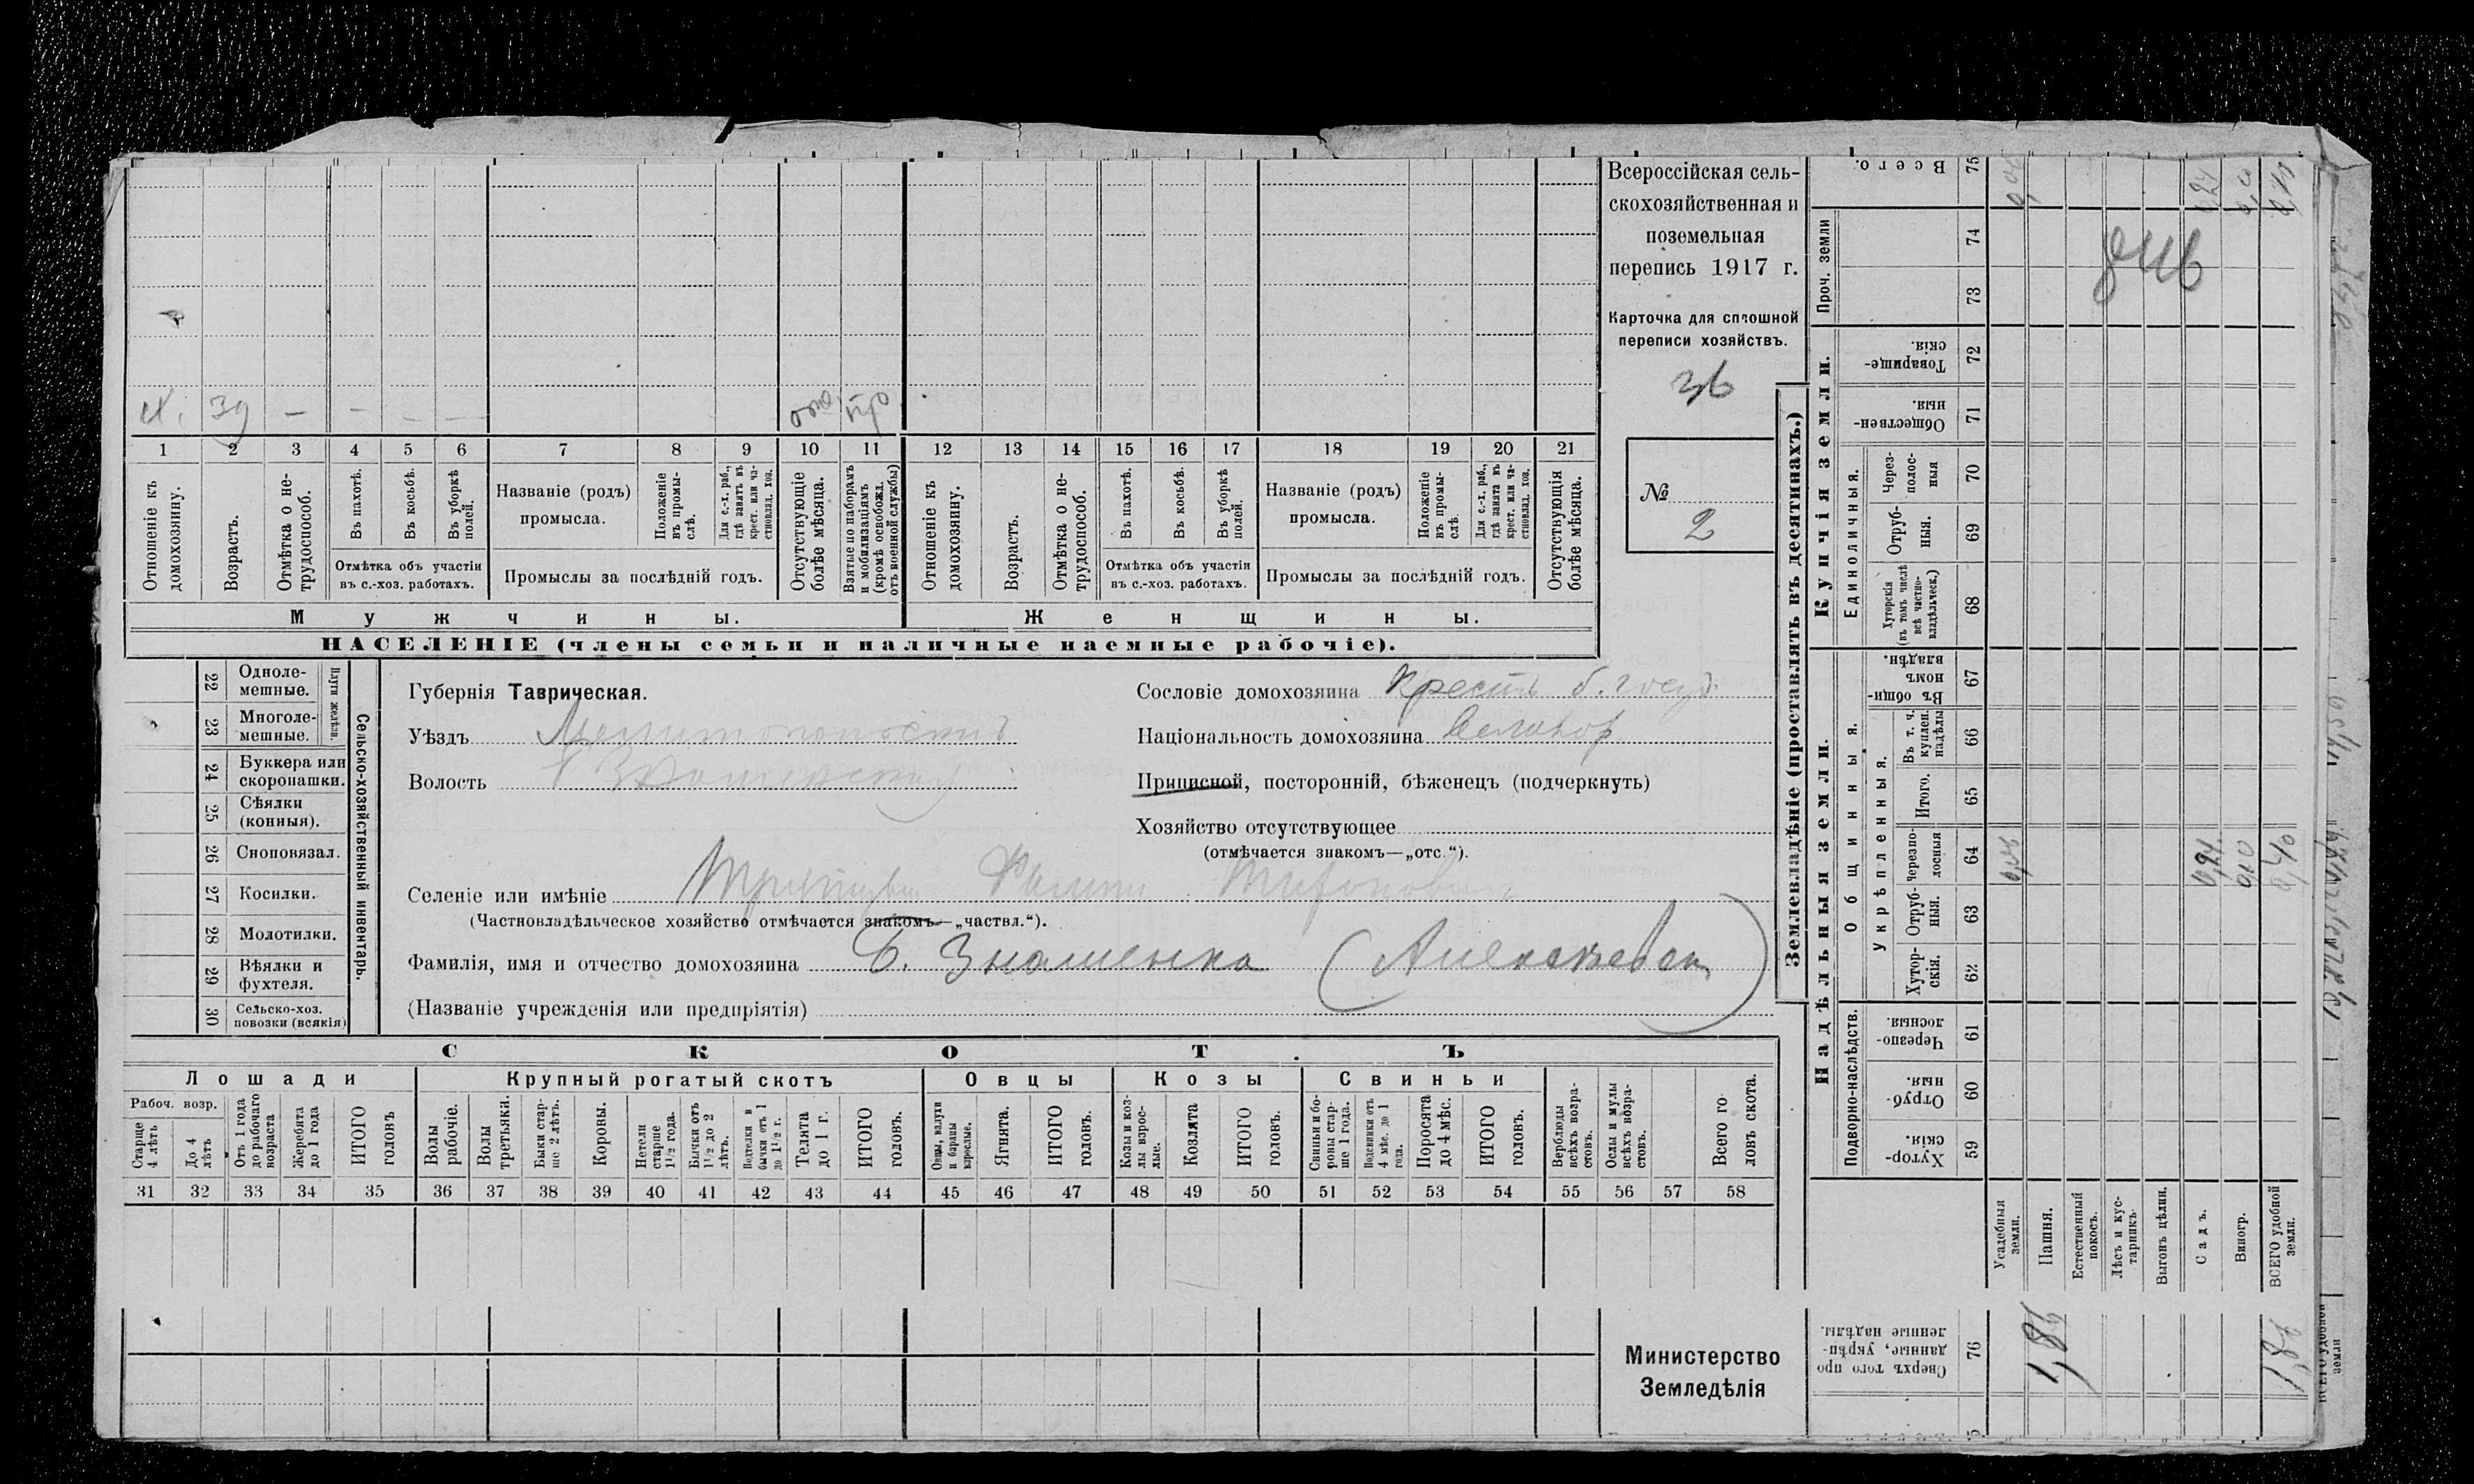 Всероссійская сель-
скохозяйственная и
поземельная
перепись 1917 г.
Карточка для сплошной
переписи хозяйствъ.
36
№
2
х. 39 — — — —
1 2 3 4 5 6 7 8 9 10 11 12 13 14 15 16 17 18 19 20 21
Отношеніе къ домохозяину.
Возрастъ.
Отмѣтка о не-
трудоспособ.
Въ пахотѣ.
Въ косьбѣ.
Въ уборкѣ полей.
Отмѣтка объ участіи
въ с.-хоз. работахъ.
Названіе (родъ)
промысла.
Положеніе
въ промы-
слѣ.
Для с.-х. раб.,
гдѣ занятъ въ
крест. или ча-
стновлад. хоз.
Промыслы за послѣдній годъ.
Отсутствующіе
болѣе мѣсяца.
Взятые по наборамъ
и мобилизаціямъ
(кромѣ освобожд.
отъ военной службы)
Отношеніе къ
домохозяину.
Возрастъ.
Отмѣтка о не-
трудоспособ.
Въ пахотѣ.
Въ косьбѣ.
Въ уборкѣ
полей.
Отмѣтка объ участіи
въ с.-хоз. работахъ.
Названіе (родъ)
промысла.
Положеніе
въ промы-
слѣ.
Для с.-х. раб.,
гдѣ занята въ
крест. или ча-
стновлад. хоз.
Промыслы за послѣдній годъ.
Отсутствующія
болѣе мѣсяца.
Мужчины.
Женщины.
НАСЕЛЕНІЕ (члены семьи и наличные наемные рабочіе).
22 Одноле-
мешные.
23 Многоле-
мешные.
Плуги желѣзн.
24 Буккера или
скоропашки.
25 Сѣялки
(конныя).
26 Сноповязал.
27 Косилки.
28 Молотилки.
29 Вѣялки и
фухтеля.
30 Сельско-хоз.
повозки (всякія)
Сельско-хозяйственный инвентарь.
Губернія Таврическая.
Уѣздъ Мелитопольскій
Волость Б Знаменская
Селеніе или имѣніе
(Частновладѣльческое хозяйство отмѣчается знакомъ—„частвл.“).
Фамилія, имя и отчество домохозяина Б. Знаменка (Алексѣевка)
(Названіе учрежденія или предпріятія)
Сословіе домохозяина Крестн б. госуд.
Національность домохозяина Великор
Приписной, посторонній, бѣженецъ (подчеркнуть)
Хозяйство отсутствующее
(отмѣчается знакомъ—„отс.“).
СКОТЪ
Лошади
Крупный рогатый скотъ
Овцы
Козы
Свиньи
Рабоч. возр.
Старше
4 лѣтъ
До 4
лѣтъ
Отъ 1 года
до рабочаго
возраста
Жеребята
до 1 года
ИТОГО
головъ
Волы
рабочіе.
Волы
третьяки.
Быки стар-
ше 2 лѣтъ.
Коровы.
Нетели
старше
1½ года.
Бычки отъ
1½ до 2
лѣтъ.
Подтелки и
бычки отъ 1
до 1½ г.
Телята
до 1 г.
ИТОГО
головъ.
Овцы, валухи
и бараны
взрослые.
Ягнята.
ИТОГО
головъ.
Козы и коз-
лы взрос-
лые.
Козлята
ИТОГО
головъ.
Свиньи и бо-
ровы стар-
ше 1 года.
Подсвинки отъ
4 мѣс. до 1
года.
Поросята
до 4 мѣс.
ИТОГО
головъ.
Верблюды
всѣхъ возра-
стовъ.
Ослы и мулы
всѣхъ возра-
стовъ.
Всего го-
ловъ скота.
31 32 33 34 35 36 37 38 39 40 41 42 43 44 45 46 47 48 49 50 51 52 53 54 55 56 57 58
Министерство
Земледѣлія
Землевладѣніе (проставлять въ десятинахъ.)
Надѣльныя земли.
Купчія земли.
Проч. земли
Подворно-наслѣдств.
Общинныя.
Укрѣпленныя.
Единоличныя.
Хутор-
скія. 59
Отруб-
ныя. 60
Черезпо-
лосныя. 61
Хутор-
скія. 62
Отруб-
ныя. 63
Черезпо-
лосныя 64
Итого. 65
Въ т. ч.
куплен.
надѣлы 66
Въ общи-
номъ
владѣн. 67
Хуторскія
(въ томъ числѣ
всѣ частно-
владѣльческ.) 68
Отруб-
ныя. 69
Через-
полос-
ныя 70
Обществен-
ныя. 71
Товарище-
скія. 72
73
74
Всего. 75
Сверхъ того про-
данные, укрѣп-
ленные надѣлы. 76
Усадебныя
земли.
Пашня.
Естественный
покосъ.
Лѣсъ и кус-
тарникъ
Выгонъ цѣлин.
Садъ.
Виногр.
ВСЕГО удобной
земли.
0,24 0,10 0,40
1,86 1,86
ВСЕГО удобной
земли